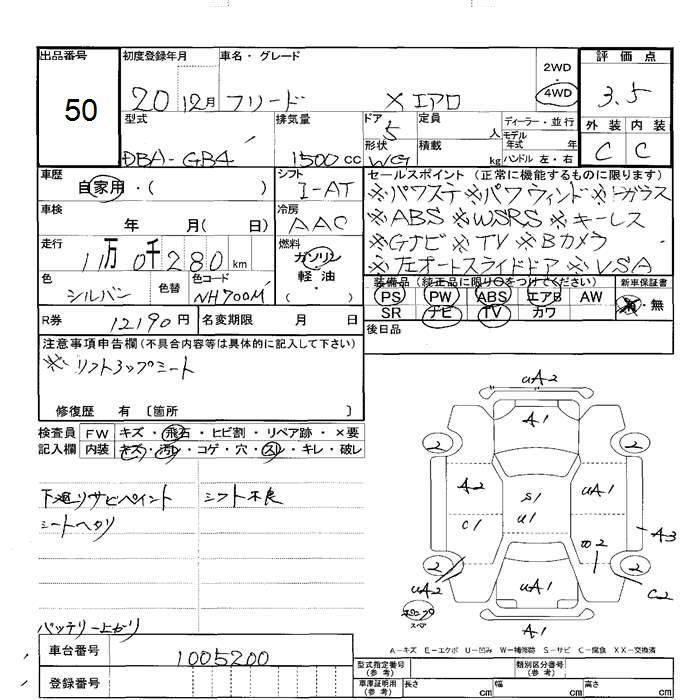 出品番号 初度登録年月 車名・グレード 2WD・4WD 評価点
50 20 12月 フリード X エアロ 3.5
型式 排気量 ドア 5 定員 人 ディーラー・並行 外装 内装
DBA-GB4 1500cc 形状 WG 積載 kg モデル年式 年 ハンドル 左・右 C C
車歴 自家用・( ) シフト I-AT セールスポイント(正常に機能するものに限ります)
※パワステ ※パワウィンド ※トガラス
車検 年 月( 日) 冷房 AAC ※ABS ※WSRS ※キーレス
走行 11万0千280km 燃料 ガソリン 軽油 ( ) ※Gナビ ※TV ※Bカメラ
※左オートスライドドア ※VSA
色 シルバー 色替 色コード NH700M
装備品(純正品に限り○をつけてください) 新車保証書
PS PW ABS エアB AW 有・無
SR ナビ TV カワ
R券 12190円 名変期限 月 日 後日品
注意事項申告欄(不具合内容等は具体的に記入して下さい)
※リフトアップシート
修復歴 有 〔箇所 〕
検査員 FW キズ・飛石・ヒビ割・リペア跡・×要
記入欄 内装 キズ・汚レ・コゲ・穴・スレ・キレ・破レ
下廻りサビペイント シフト不良
シートヘタリ
バッテリー上がり
UA2
A1
2 2
A2 S1 UA1
C1 U1 A3
W2
2 2
UA2 UA1 C2
スペア
A1
A-キズ E-エクボ U-凹み W-補修跡 S-サビ C-腐食 XX-交換済
車台番号 1005200
型式指定番号(参考) 類別区分番号(参考)
登録番号 車庫証明用(参考) 長さ cm 幅 cm 高さ cm